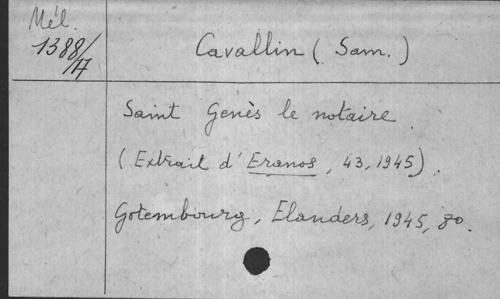 Mél.
1388/
/17
Cavallin (Sam.)
Saint Genès le notaire.
(Extrait d'Eranos, 43, 1945).
Gotembourg, Elanders, 1945, 8o.